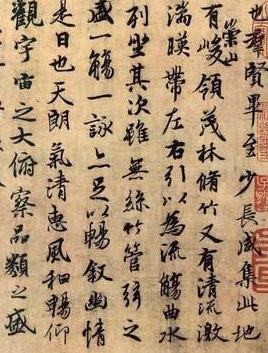 也羣賢畢至少長咸集此地
有崇山峻領茂林脩竹又有清流激
湍暎帶左右引以為流觴曲水
列坐其次雖無絲竹管弦之
盛一觴一詠上足以暢敘幽情
是日也天朗氣清惠風和暢仰
觀宇宙之大俯察品類之盛